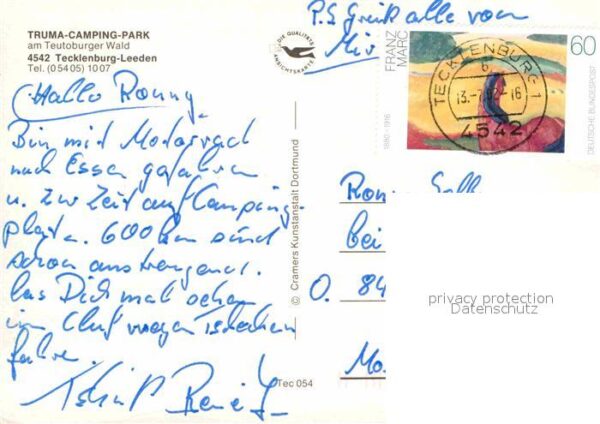 TRUMA-CAMPING-PARK
am Teutoburger Wald
4542 Tecklenburg-Leeden
Tel. (05405) 1007
P.S Grüß alle von
Mir
DIE QUALITÄTS
ANSICHTSKARTE
FRANZ MARC
1880-1916
60
DEUTSCHE BUNDESPOST
TECKLENBURG 1
b
-16
4542
Hallo Ronny.
Bin mit Motorrad
nach Essen gefahren
u. zur Zeit auf Camping-
platz. 600 km sind
schon anstrengend.
Las Dich mal sehen
im Club wegen
fahre.
© Cramers Kunstanstalt Dortmund
Tec 054
bei
O. 84
Mo.
privacy protection
Datenschutz